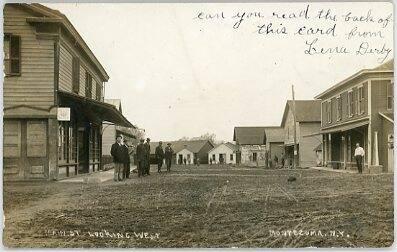 can you read the back of
this card from
Lena Derby
MAIN ST. LOOKING WEST
MONTEZUMA, N.Y.